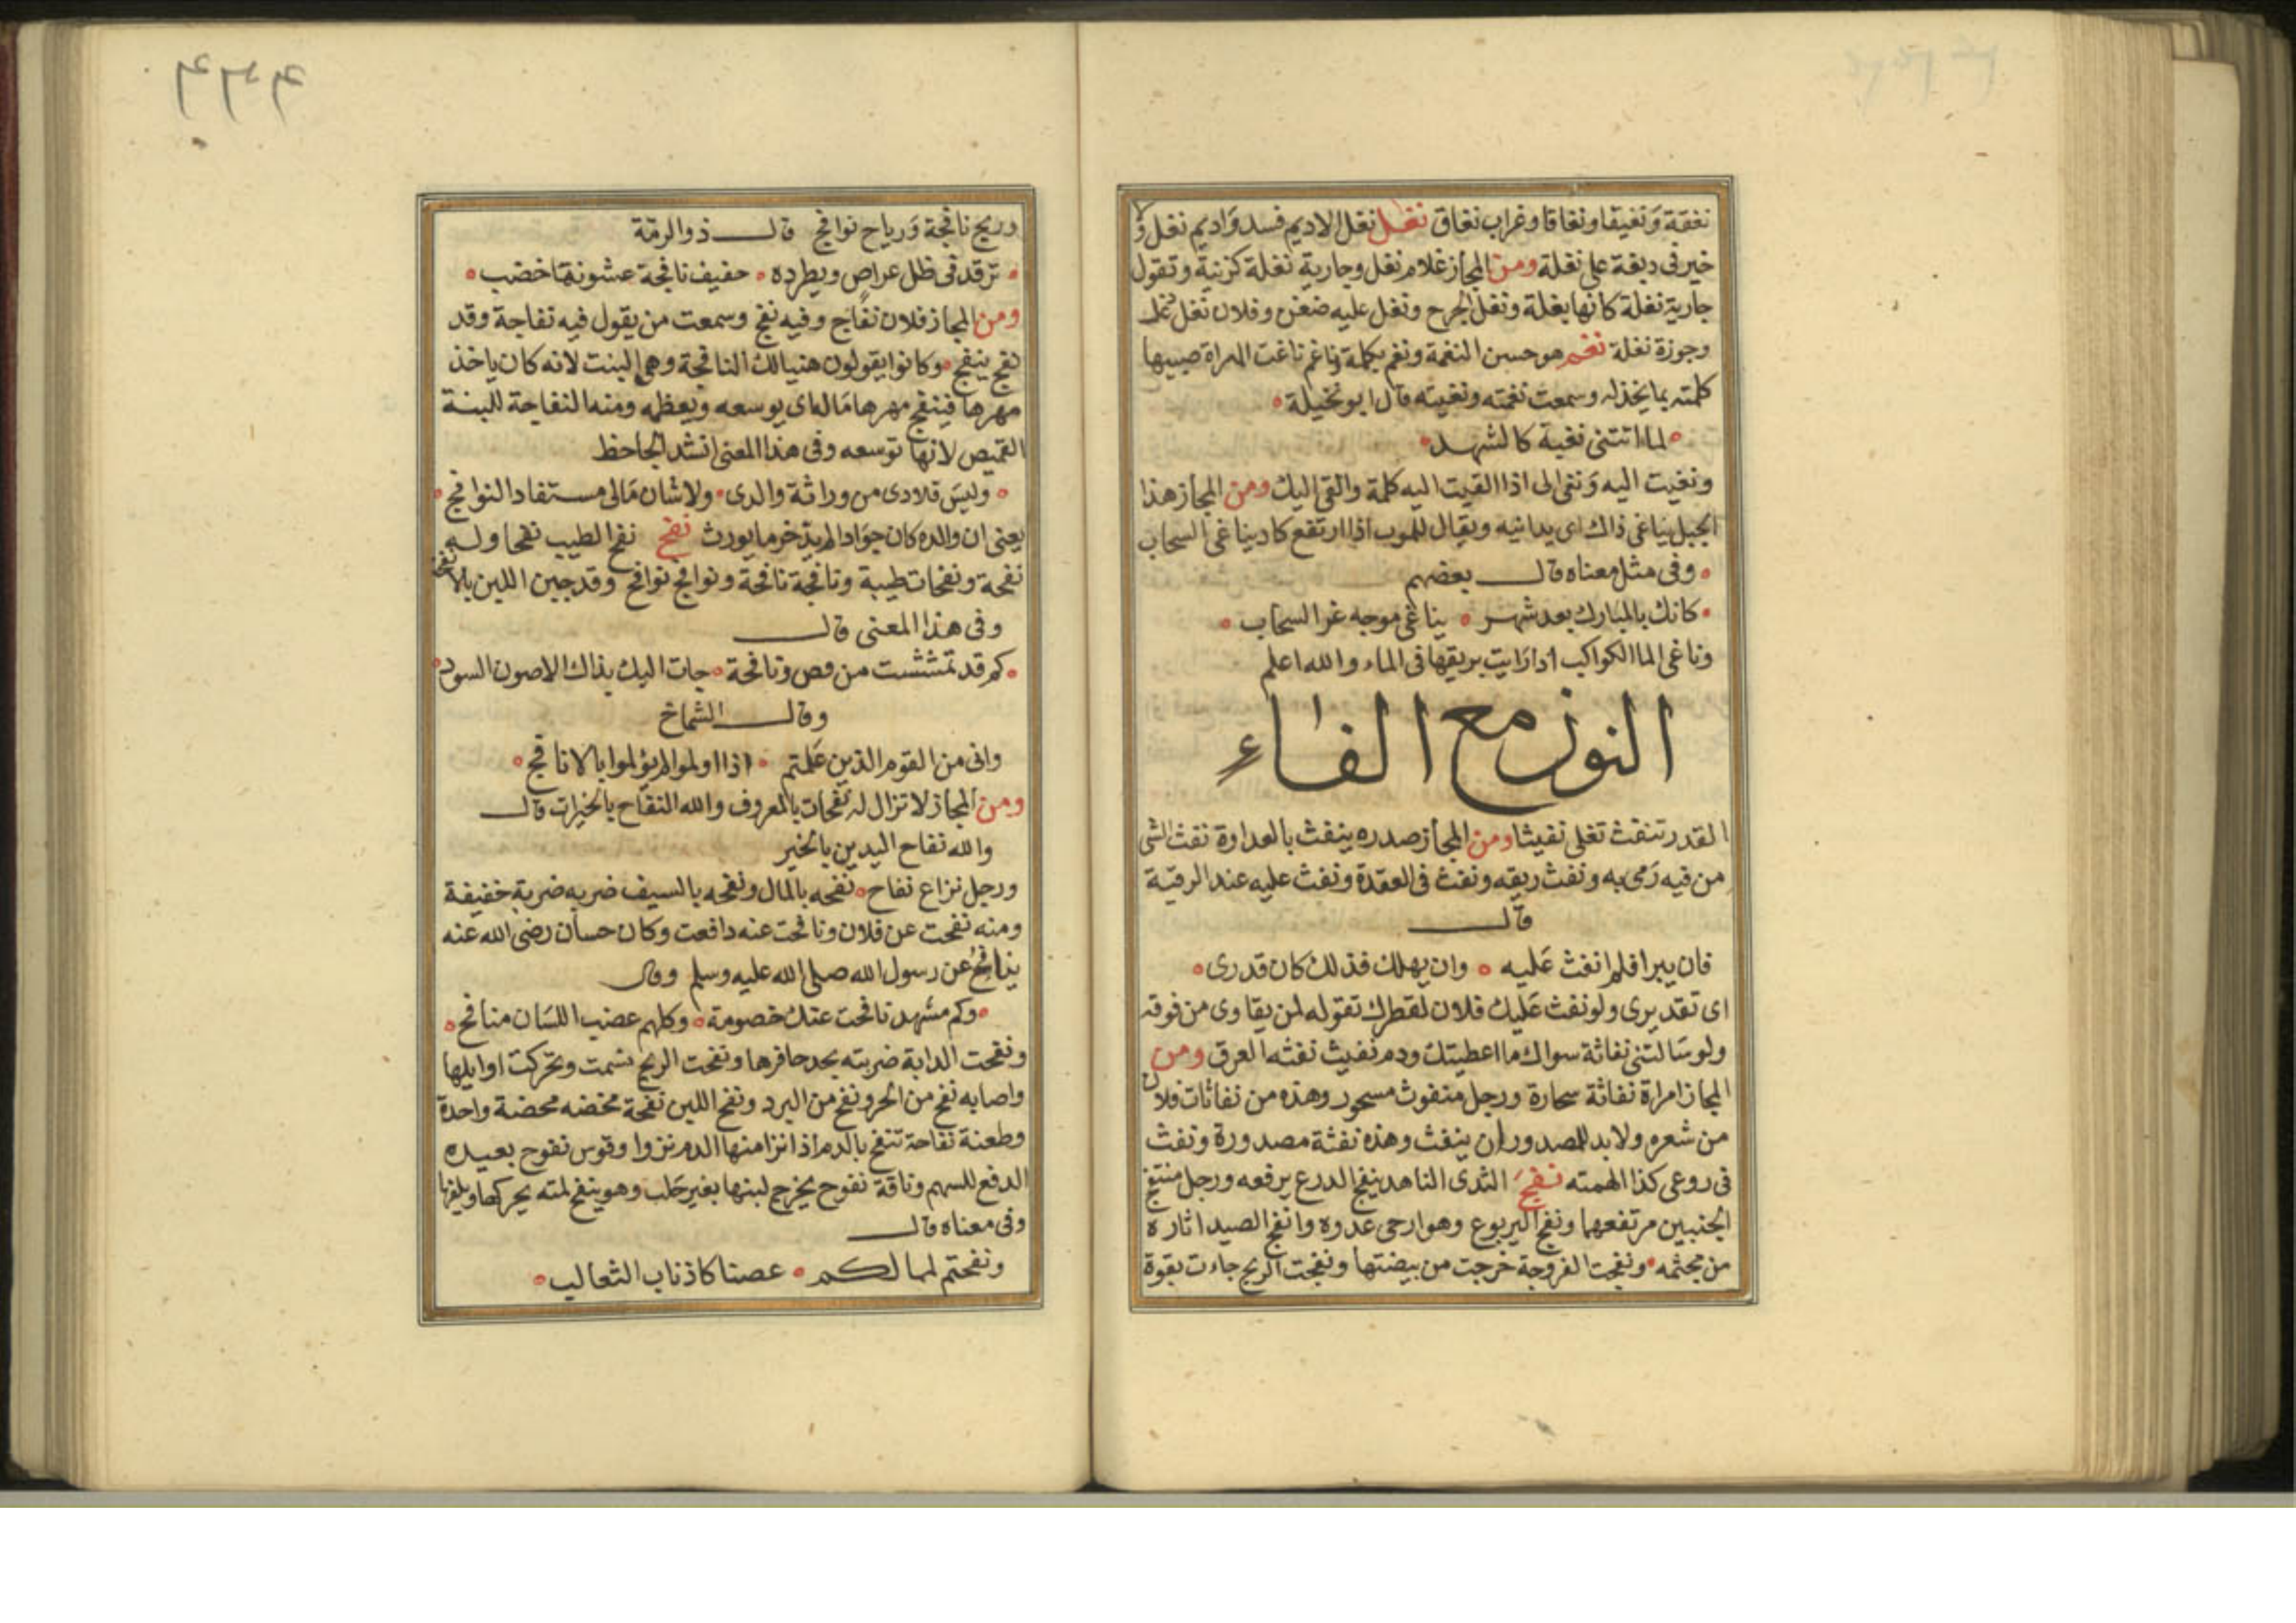 نغقة ونغيقا ونغاقا وغراب نغاق نغل نغل الاديم فسد واديم نغل ولا
خير فى دبغة على نغلة ومن المجاز غلام نغل وجارية نغلة كزنية وتقول
جارية نغلة كانها بغلة ونغل الجرح ونغل عليه ضغن وفلان نغل
وجوزة نغلة نغم هو حسن النغمة ونغم بكلمة وناغم ناغت المراة صبيها
كلمته بما يخذله وسمعت نغمته ونغيته قال ابو نخيلة
لما اتتنى نغية كالشهد
ونغيت اليه ونغى الى اذا القيت اليه كلمة والقى اليك ومن المجاز هذا
الجبل يناغى ذاك اى يدانيه ويقال للموب اذا ارتفع كاد يناغى السحاب
وفى مثل معناه قال بعضهم
كانك بالمبارك بعد شهر يناغى موجه غر السحاب
وناغى الما الكواكب اذا رايت بريقها فى الماء والله اعلم
النون مع الفاء
القدر تنفث تغلى نفيثا ومن المجاز صدره ينفث بالعداوة نفث الشى
من فيه رمى به ونفث ريقه ونفث فى العقدة ونفث عليه عند الرقية
قال
فان يبرا فلم انفث عليه وان يهلك فذلك كان قدرى
اى تقديرى ولو نفث عليك فلان لقطرك تقوله لمن يقاوى من فوقه
ولو سالتنى نفاثة سواك ما اعطيتك ودم نفيث نفثه العرق ومن
المجاز امراة نفاثة سحارة ورجل منفوث مسحور وهذه من نفاثات فلان
من شعره ولا بد للمصدور ان ينفث وهذه نفثة مصدورة ونفث
فى روعى كذا الهمته نفج الثدى الناهد ينفج الدرع يرفعه ورجل منتفج
الجنبين مرتفعهما ونفج اليربوع وهو ارحى عدوه وانفج الصيد اثاره
من مجثمه ونفجت الفروجة خرجت من بيضتها ونفجت الريح جاءت بقوة
وريح نافجة ورياح نوافج قال ذو الرمة
ترقد فى ظل عراص ويطرده حفيف نافجة عشونها خضب
ومن المجاز فلان نفاج وفيه نفج وسمعت من يقول فيه نفاجة وقد
نفج ينفج وكانوا يقولون هنيا لك النافجة وهى البنت لانه كان ياخذ
مهرها فينفج مهرها ماله اى يوسعه ويعظمه ومنه النفاجة للبنة
القميص لانها توسعه وفى هذا المعنى انشد الجاحظ
وليس تلادى من وراثة والدى ولا شان مالى مستفاد النوافج
يعنى ان والده كان جوادا لم يذخر ما يورث نفح نفح الطيب نفحا وله
نفحة ونفحات طيبة ونافجة نافحة ونوافج نوافح وقد جبن اللبن بالانفحة
وفى هذا المعنى قال
كم قد تمششت من قص وانفحة جات اليك بذاك الاصون السود
وقال الشماخ
وانى من القوم الذين علمتم اذا اولموا لم يولموا بالانافح
ومن المجاز لا تزال له نفحات بالمعروف والله النفاح بالخيرات قال
والله نفاح اليدين بالخير
ورجل نزاع نفاح نفحه بالمال ونفحه بالسيف ضربه ضربة خفيفة
ومنه نفحت عن فلان ونافحت عنه دافعت وكان حسان رضى الله عنه
ينافح عن رسول الله صلى الله عليه وسلم وقال
وكم مشهد نافحت عنك خصومة وكلهم عضب اللسان منافح
ونفحت الدابة ضربته بحد حافرها ونفحت الريح نسمت وتحركت اوايلها
واصابه نفح من الحر ونفح من البرد ونفح اللبن نفحة مخضه مخضة واحدة
وطعنة نفاحة تنفح بالدم اذا نزا منها الدم نزوا وقوس نفوح بعيدة
الدفع للسهم وناقة نفوح يخرج لبنها بغير حلب وهو ينفح لمته يحركها ويلفها
وفى معناه قال
ونفحتم لما لكم عصنا كاذناب الثعالب